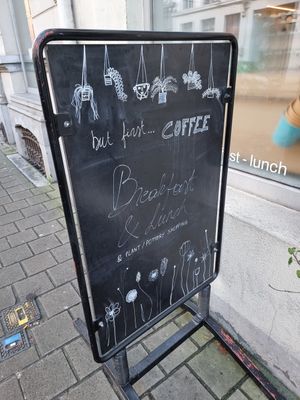 but first... COFFEE
Breakfast
& Lunch
& PLANT / POTTERY SHOPPING
st - lunch